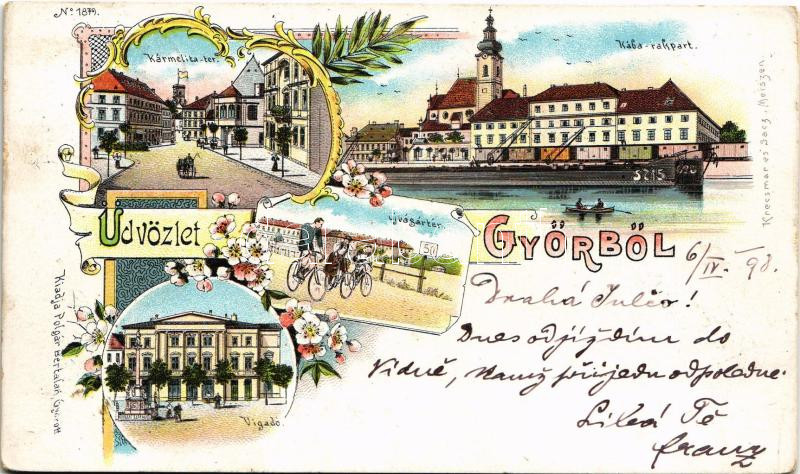 No. 1879.
Kármelita-ter.
Rába-rakpart.
S215
Üdvözlet
GYŐRBŐL
ujvágártér.
50
Vigadó.
Kiadja Polgár Bertalan Győrött
Knecsmar és Sacz, Meiszen.
6/IV. 98.
Drahá Julčo!
Dnes odjíždím do
Vídně, kamž přijedu odpoledne.
Líbá Tě
Franz